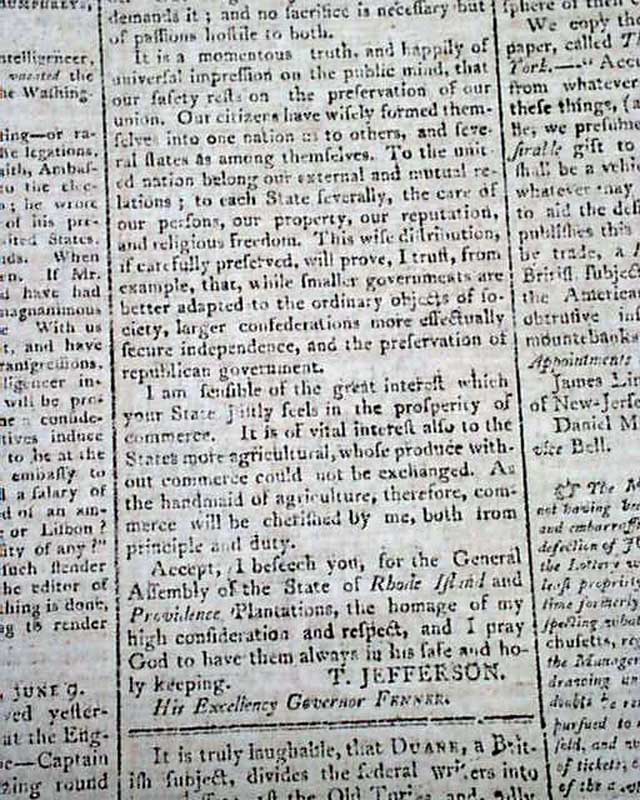 UMPHREYS,
ntelligencer,
vacated the
he Washing-
ting—or ra-
he legations.
aith, Ambas-
to the che-
n; he wrote
of his pre-
nited States.
nds. When
en. If Mr.
d have had
nagnanimous
e With us
t, and have
ransgressions.
lligencer in-
will be pro-
ne a confide-
tives induce
to be at the
embassy to
d a salary of
ed of an am-
e or Lisbon?
ity of any?"
such slender
he editor of
thing is done,
ng to render
JUNE 9.
ved yester-
at the Eng-
ce—Captain
zing round
demands it; and no sacrifice is necessary but
of passions hostile to both.
It is a momentous truth, and happily of
universal impression on the public mind, that
our safety rests on the preservation of our
union. Our citizens have wisely formed them-
selves into one nation as to others, and seve-
ral states as among themselves. To the unit-
ed nation belong our external and mutual re-
lations; to each State severally, the care of
our persons, our property, our reputation,
and religious freedom. This wise distribution,
if carefully preserved, will prove, I trust, from
example, that, while smaller governments are
better adapted to the ordinary objects of so-
ciety, larger confederations more effectually
secure independence, and the preservation of
republican government.
I am sensible of the great interest which
your State justly feels in the prosperity of
commerce. It is of vital interest also to the
States more agricultural, whose produce with-
out commerce could not be exchanged. As
the handmaid of agriculture, therefore, com-
merce will be cherished by me, both from
principle and duty.
Accept, I beseech you, for the General
Assembly of the State of Rhode Island and
Providence Plantations, the homage of my
high consideration and respect, and I pray
God to have them always in his safe and ho-
ly keeping. T. JEFFERSON.
His Excellency Governor FENNER.
It is truly laughable, that DUANE, a Brit-
ish subject, divides the federal writers into
the Old Tories and
sphere of their
We copy th
paper, called T
York.—" Acc
from whatever
these things, (
tle; we presume
sirable gift to
shall be a vehi
whatever may
to aid the desi
publishes this
be trade, a
British subject
the American
obtrusive inf
mountebanks
Appointments
James Li
of New-Jerse
Daniel M
vice Bell.
The M
not having be
and embarrass
defection of J
the Lottery
less propriet
time formerly
specting what
chusetts, re
the Manager
drawing un
doubts be
pursued to
sold, and
of tickets,
of the